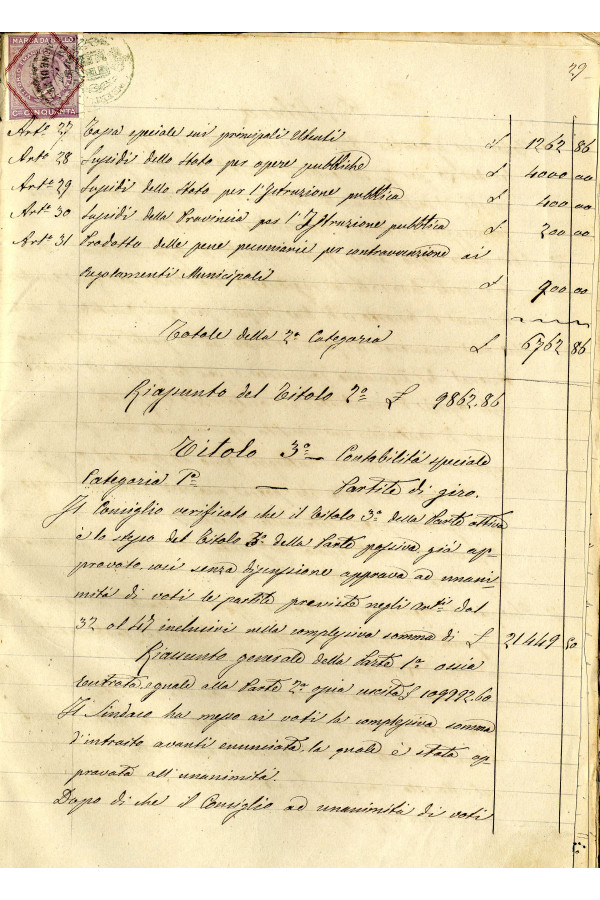 MARCA DA BOLLO
Ct. CINQUANTA
29
Arto 27 Tassa speciale sui principali Utenti £ 1262 86
Arto 28 Sussidi dello Stato per opere pubbliche £ 4000 00
Arto 29 Sussidi dello Stato per l'Istruzione pubblica £ 400 00
Arto 30 Sussidi della Provincia per l'Istruzione pubblica £ 200 00
Arto 31 Prodotto delle pene pecuniarie per contravvenzione ai
Regolamenti Municipali £ 900 00
Totale della 2a Categoria £ 6762 86
Riassunto del Titolo 2o £ 9862.86
Titolo 3o — Contabilità speciale
Categoria 1a — Partite di giro.
Il Consiglio verificato che il Titolo 3o della Parte attiva
è lo stesso del Titolo 3o della Parte passiva già ap-
provato, così senza discussione approva ad unani-
mità di voti le partite previste negli Arti dal
32 al 47 inclusivi nella complessiva somma di £ 21449 50
Riassunto generale della Parte 1a ossia
Entrata, eguale alla Parte 2a già uscita £ 109992.60
Il Sindaco ha messo ai voti la complessiva somma
d'introito avanti enunciata, la quale è stata ap-
provata all'unanimità.
Dopo di che il Consiglio ad unanimità di voti